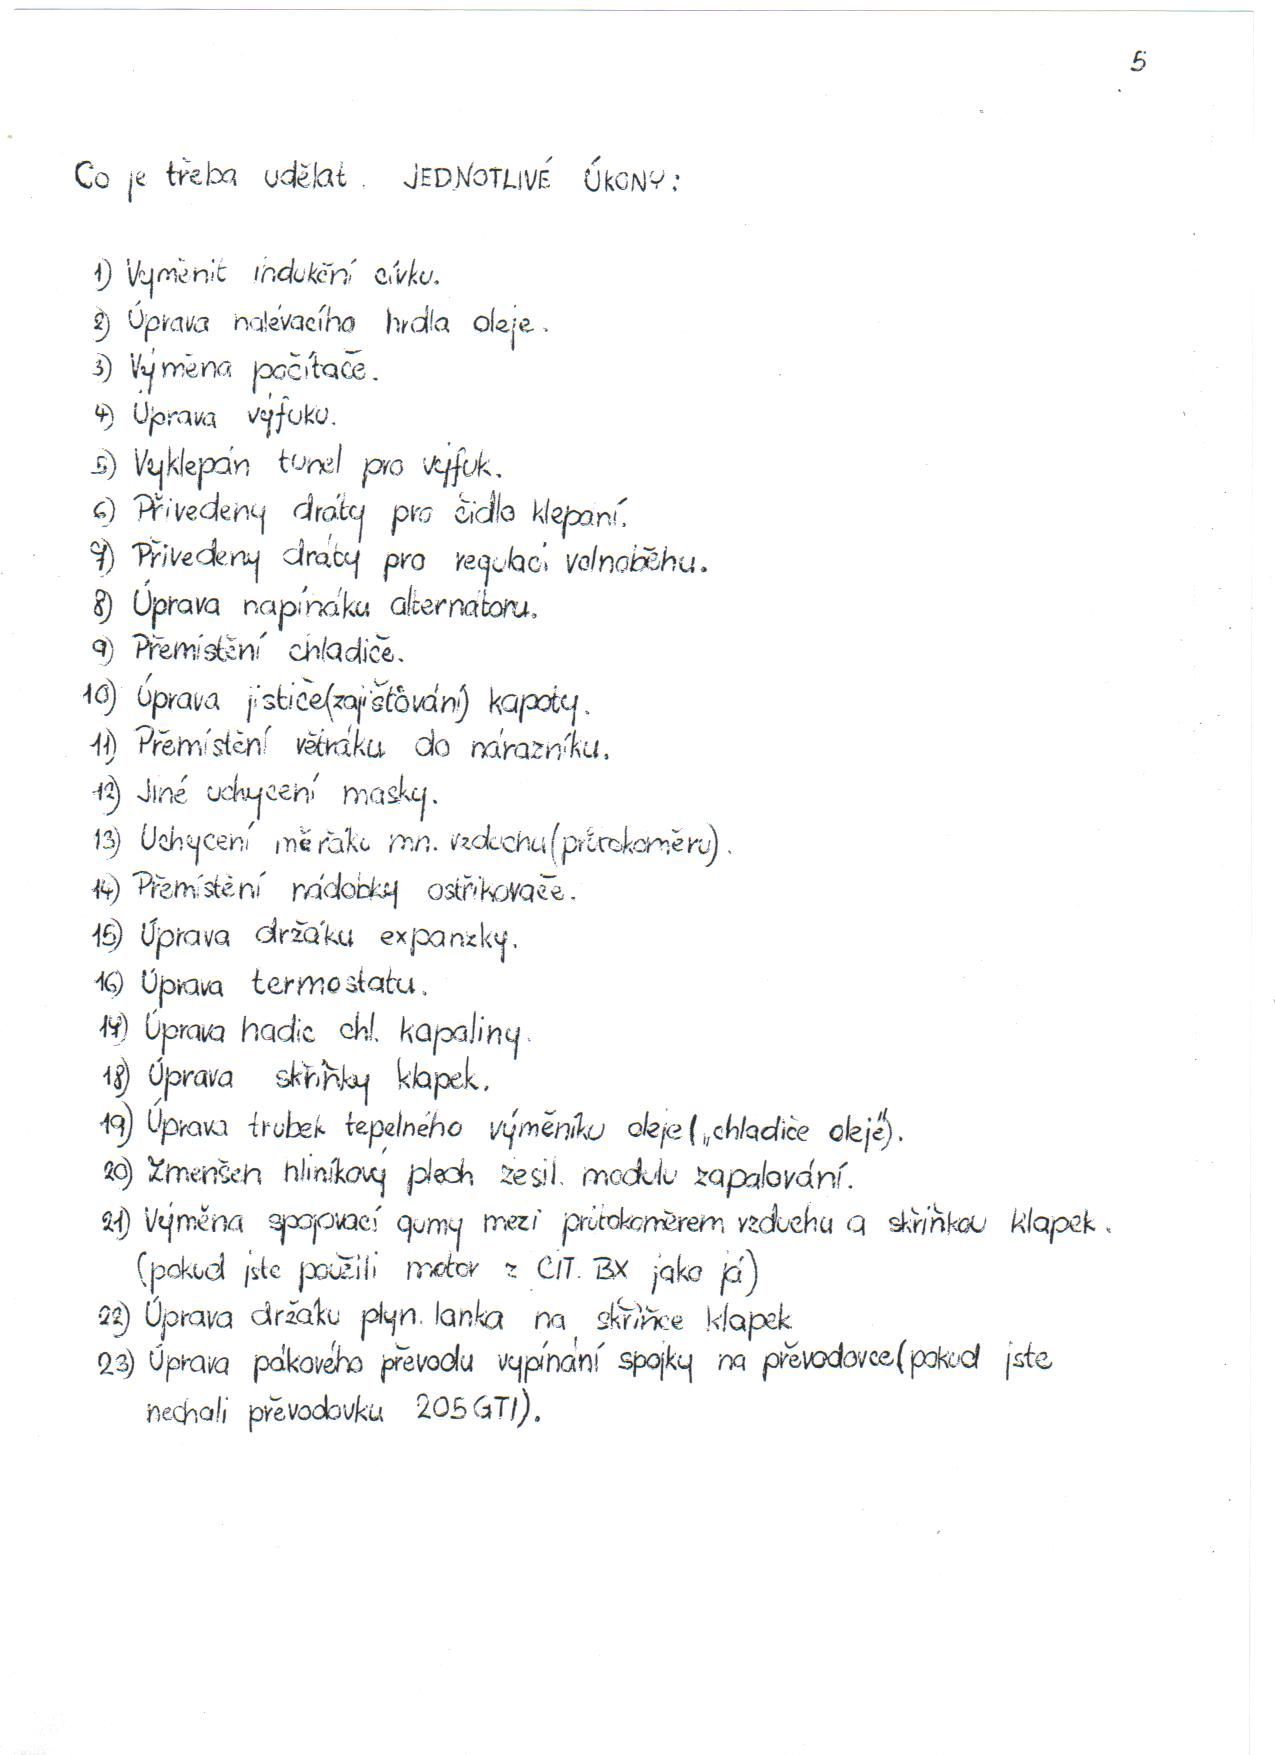 5
Co je třeba udělat. JEDNOTLIVÉ ÚKONY:
1) Vyměnit indukční cívku.
2) Úprava nalévacího hrdla oleje.
3) Výměna počítače.
4) Úprava výfuku.
5) Vyklepán tunel pro výfuk.
6) Přivedeny dráty pro čidlo klepání.
7) Přivedeny dráty pro regulaci volnoběhu.
8) Úprava napínáku alternátoru.
9) Přemístění chladiče.
10) Úprava jističe(zajišťování) kapoty.
11) Přemístění větráku do nárazníku.
12) Jiné uchycení masky.
13) Uchycení měřáku mn. vzduchu(průtokoměru).
14) Přemístění nádobky ostřikovače.
15) Úprava držáku expanzky.
16) Úprava termostatu.
17) Úprava hadic chl. kapaliny.
18) Úprava skříňky klapek.
19) Úprava trubek tepelného výměníku oleje(„chladiče oleje").
20) Zmenšen hliníkový plech zesil. modulu zapalování.
21) Výměna spojovací gumy mezi průtokoměrem vzduchu a skříňkou klapek.
(pokud jste použili motor z CIT. BX jako já)
22) Úprava držáku plyn. lanka na skříňce klapek
23) Úprava pákového převodu vypínání spojky na převodovce(pokud jste
nechali převodovku 205GTI).